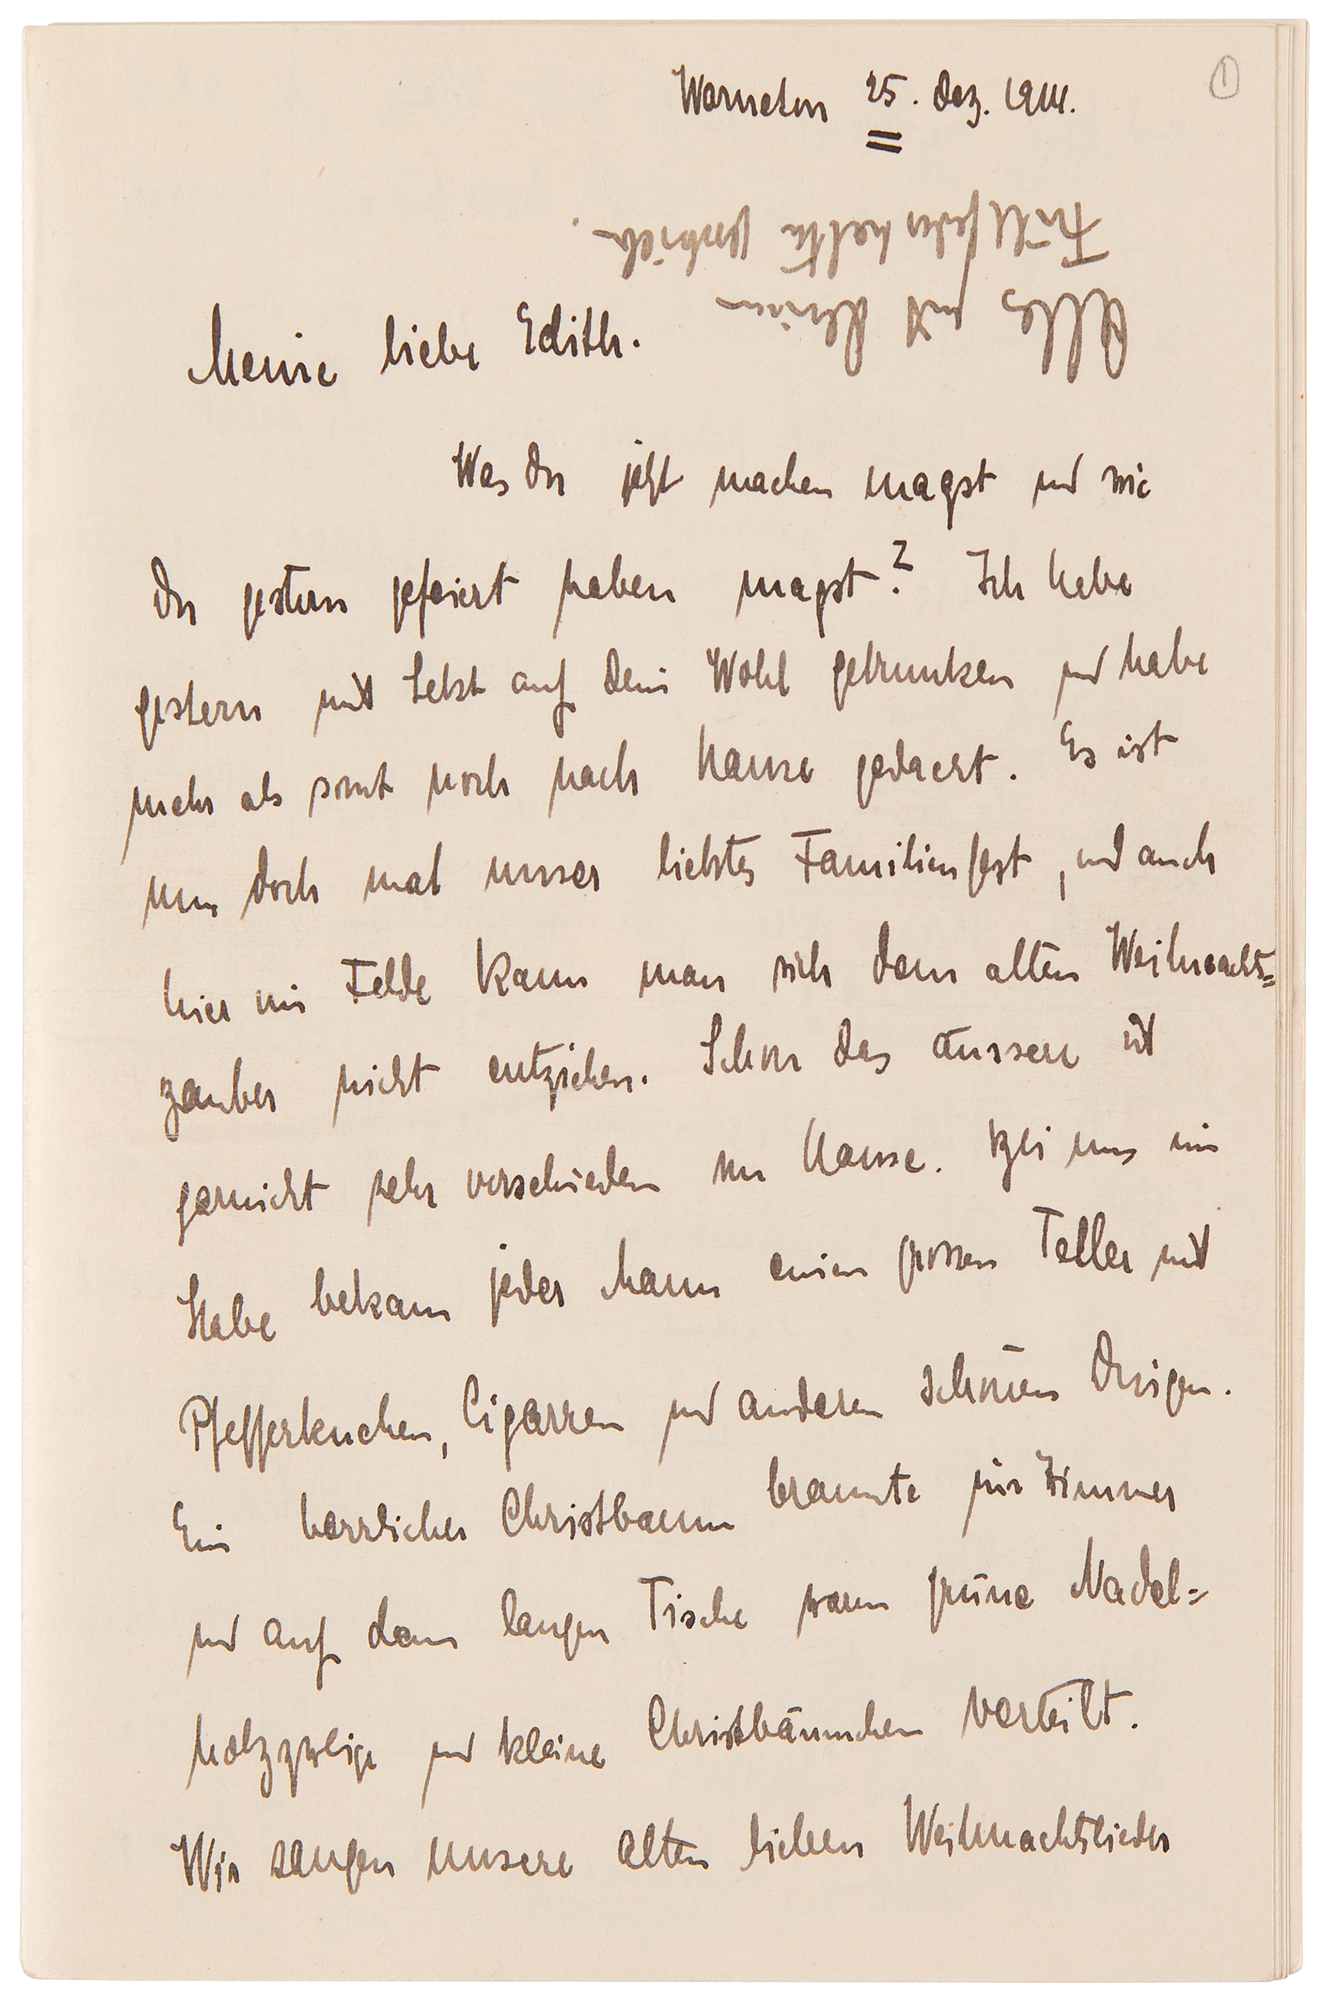 Warneton 25. Dez. 1914.
1
Alles mit Deinem
Füllfederhalter
Meine liebe Edith.
Was Du jetzt machen magst und wie
Du gestern gefeiert haben magst? Ich habe
gestern mit Sekt auf Dein Wohl getrunken und habe
mehr als sonst noch nach Hause gedacht. Es ist
nun doch mal unser liebstes Familienfest, und auch
hier im Felde kann man sich dem alten Weihnachts=
zauber nicht entziehen. Schon das äussere ist
garnicht sehr verschieden von Hause. Bei uns im
Stabe bekam jeder Mann einen grossen Teller mit
Pfefferkuchen, Cigarren und anderen schönen Dingen.
Ein herrlicher Christbaum brannte im Zimmer
und auf dem langen Tische waren grüne Nadel=
holzzweige und kleine Christbäumchen verteilt.
Wir sangen unsere alten lieben Weihnachtslieder